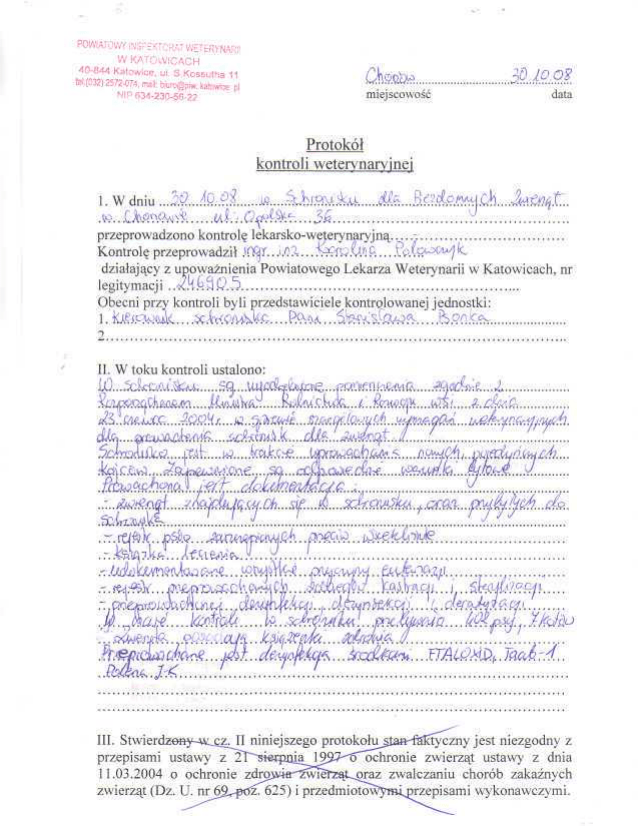 POWIATOWY INSPEKTORAT WETERYNARII
W KATOWICACH
40-844 Katowice, ul. S.Kossutha 11
tel.(032) 2572-074, mail: biuro@piw.katowice.pl
NIP 634-230-56-22
Chorzów 30.10.08
miejscowość data
Protokół
kontroli weterynaryjnej
1. W dniu 30.10.08 w Schronisku dla Bezdomnych Zwierząt
w Chorzowie ul. Opolska 36
przeprowadzono kontrolę lekarsko-weterynaryjną
Kontrolę przeprowadził mgr inż. Karolina
działający z upoważnienia Powiatowego Lekarza Weterynarii w Katowicach, nr
legitymacji 246905
Obecni przy kontroli byli przedstawiciele kontrolowanej jednostki:
1. Kierownik schroniska Pani Stanisława Bońca
2.
II. W toku kontroli ustalono:
W schronisku są pomieszczenia zgodnie z
Rozporządzeniem Ministra Rolnictwa i Rozwoju Wsi z dnia
23 czerwca 2004r. w sprawie szczegółowych wymagań weterynaryjnych
dla prowadzenia schronisk dla zwierząt.
Schronisko jest w trakcie nowych, pojedynczych
kojców. Zapewnione są odpowiednie warunki bytowe.
Prowadzona jest dokumentacja:
- zwierząt znajdujących się w schronisku, oraz przybyłych do
schroniska
- rejestr psów zaszczepionych przeciw wściekliźnie
- książka leczenia
- udokumentowane wszystkie przyczyny eutanazji
- rejestr przeprowadzonych zabiegów kastracji i sterylizacji
- przeprowadzonej dezynfekcji, dezynsekcji i deratyzacji
W czasie kontroli w schronisku przebywało psy, 7 kotów
zwierzęta posiadają książeczki zdrowia
Przeprowadzane jest dezynfekcja środkami
III. Stwierdzony w cz. II niniejszego protokołu stan faktyczny jest niezgodny z
przepisami ustawy z 21 sierpnia 1997 o ochronie zwierząt ustawy z dnia
11.03.2004 o ochronie zdrowia zwierząt oraz zwalczaniu chorób zakaźnych
zwierząt (Dz. U. nr 69, poz. 625) i przedmiotowymi przepisami wykonawczymi.